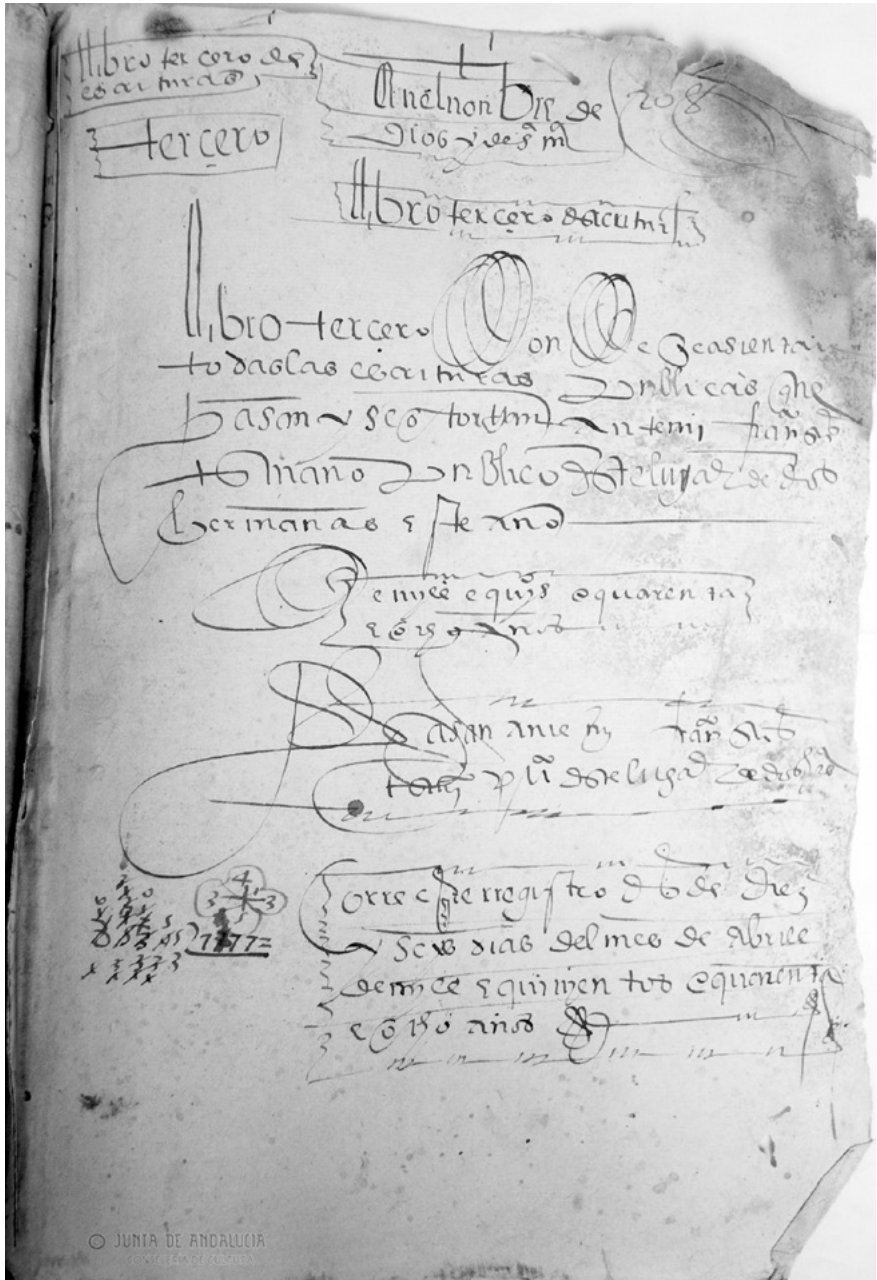 libro tercero de
escrituras
tercero
En el nonbre de
dios y de sª mª
208
libro tercero de scritus
libro tercero Donde se asientan
todas las escrituras publicas que
pasan y se otorgan ante mi franco
publico deste lugar de dos
hermanas este año
de mill e quios e quarenta
e ocho años
Pasan ante my franco
puco deste lugar de dos hrs
Corre este rregistro desde diez
y seys dias del mes de abrill
de mill e quinientos e quarenta
e ocho años
7777
© JUNTA DE ANDALUCIA
CONSEJERÍA DE CULTURA